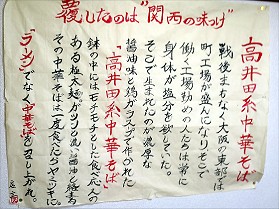 覆したのは"関西の味っけ"
"高井田系中華そば"
戦後まもなく大阪の東部は
町工場が盛んになりそこで
働く工場勤めの人たちは常に
身体が塩分を欲していた。
そこで生まれたのが濃厚な
醤油味と鶏がラスープで作られた
「高井田系中華そば」
鉢の中にはモチモチとした食べ応えの
ある極太麺がソソる濃い醤油と絡まる
その中華そばは一度食べたらヤミツキに。
「ラーメン」でなく中華そばを召し上がれ。
店主